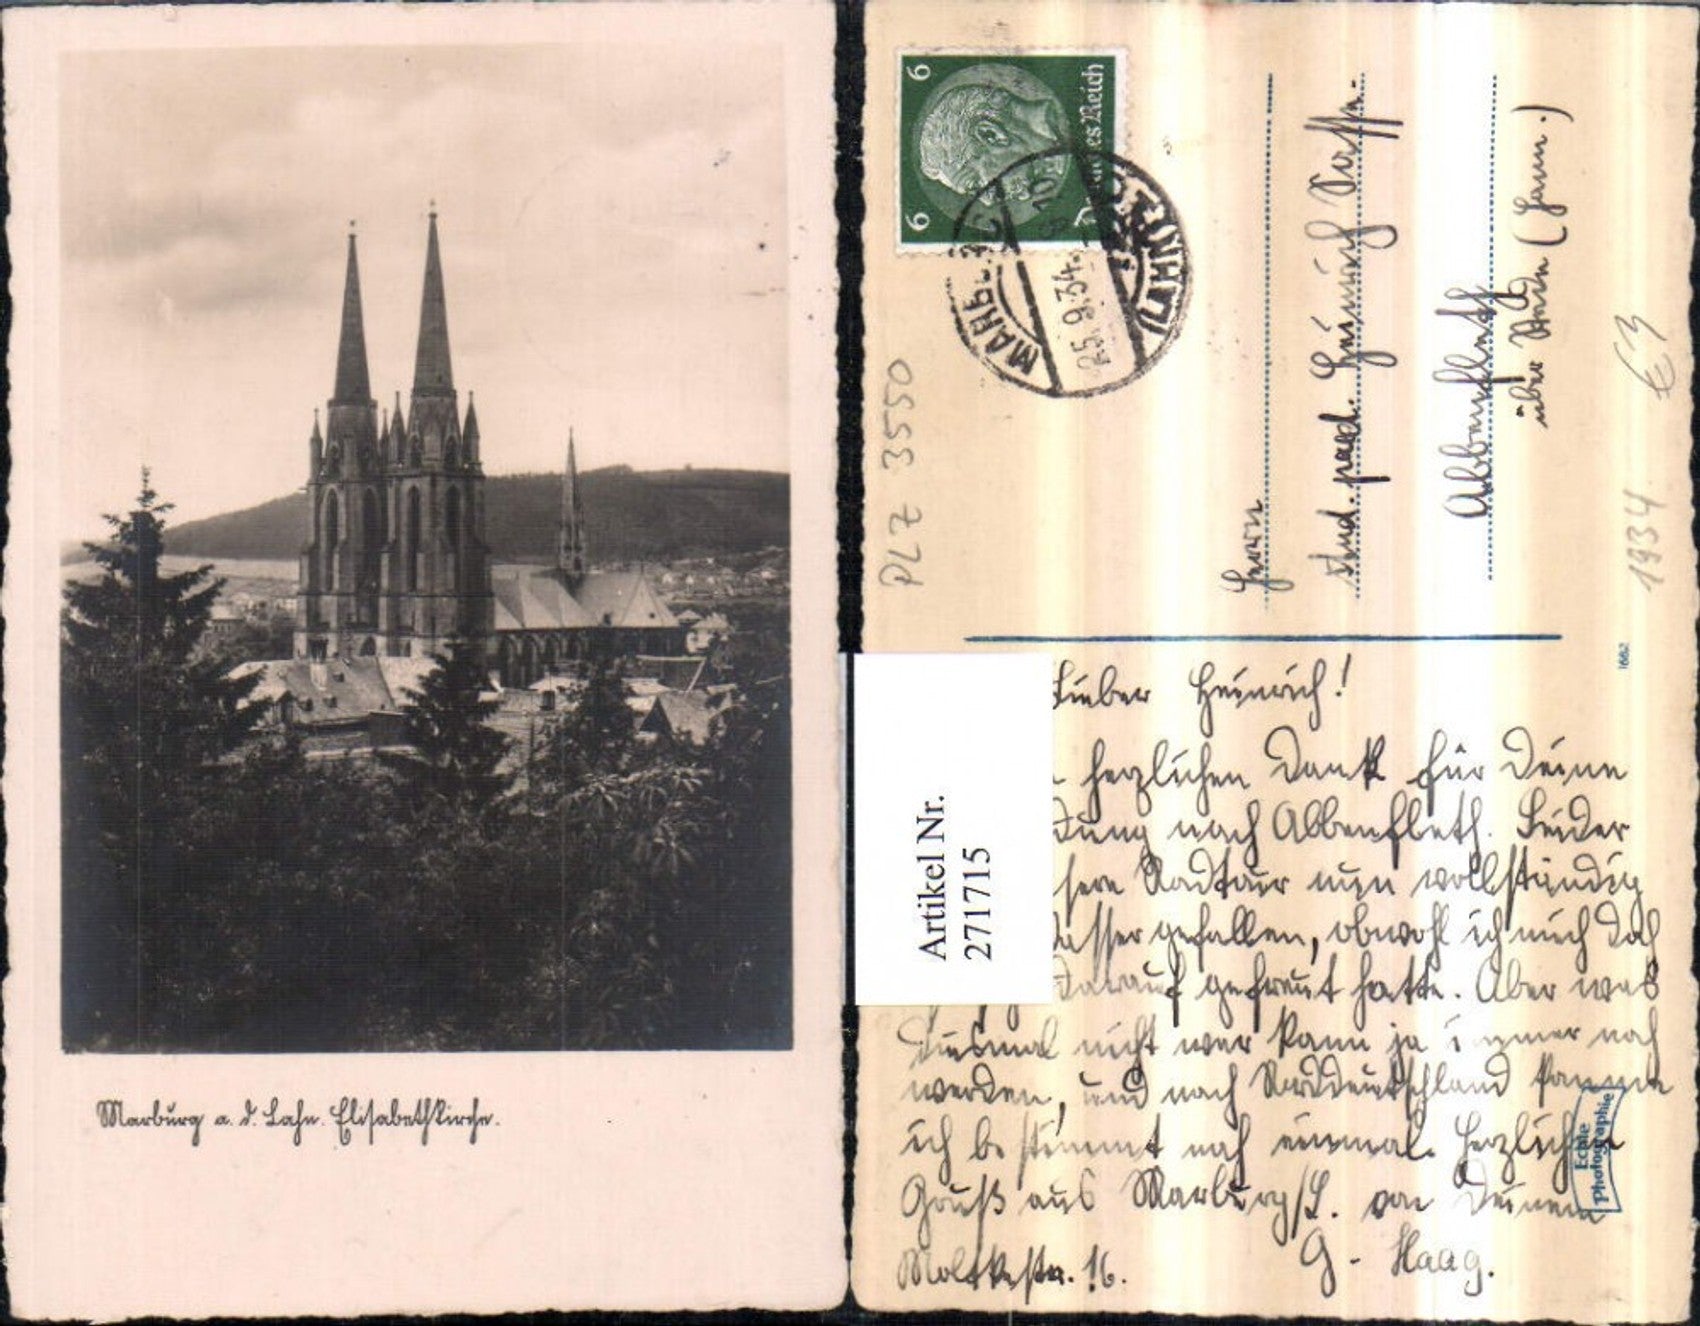 Marburg a. d. Lahn. Elisabethkirche.
6
6
Deutsches Reich
MARBURG
(LAHN)
25.9.34.
10
PLZ 3550
Herrn
stud. paed. Heinrich
Abbenfleth
über Stade (Hann.)
€ 3
1934
1662
Artikel Nr.
271715
Lieber Heinrich!
herzlichen Dank für Deine
dung nach Abbenfleth. Leider
sere Radtour nun vollständig
asser gefallen, obwohl ich mich doch
darauf gefreut hatte. Aber was
diesmal nicht war kann ja immer noch
werden, und nach Norddeutschland komme
ich bestimmt noch einmal. Herzlichen
Gruß aus Marburg/L. von Deinem
G. Haag.
Moltkestr. 16.
Echte
Photographie